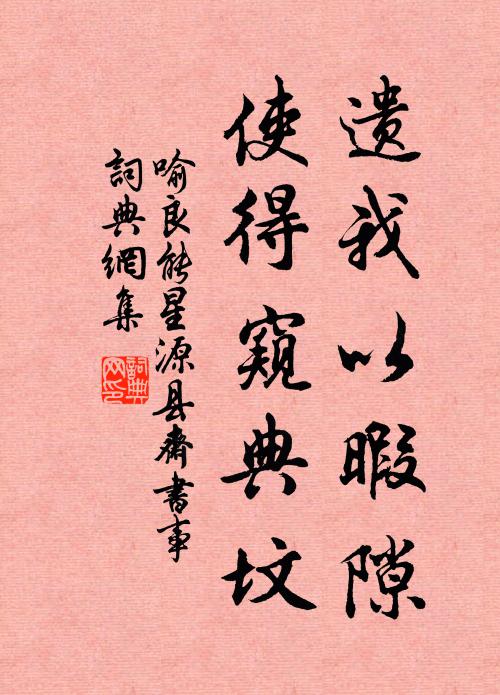 遗我以暇隙
使得窥典坟
喻良能星源县斋书事
詞典網集
詞典网印